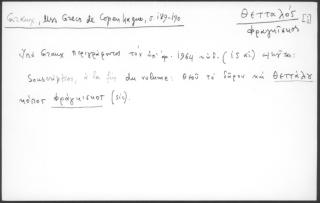 Graux, Mss Grecs de Copenhague, σ. 189-190.
Θετταλός
Φραγκίσκος
Ὑπὸ Graux περιγράφεται τὸν ὑπ' ἀρ. 1964 κώδ. (15 αἰ)
Souscription, à la fin du volume: θεοῦ τὸ δῶρον καὶ θεττάλου
κόπος φράγκισκος (sic).